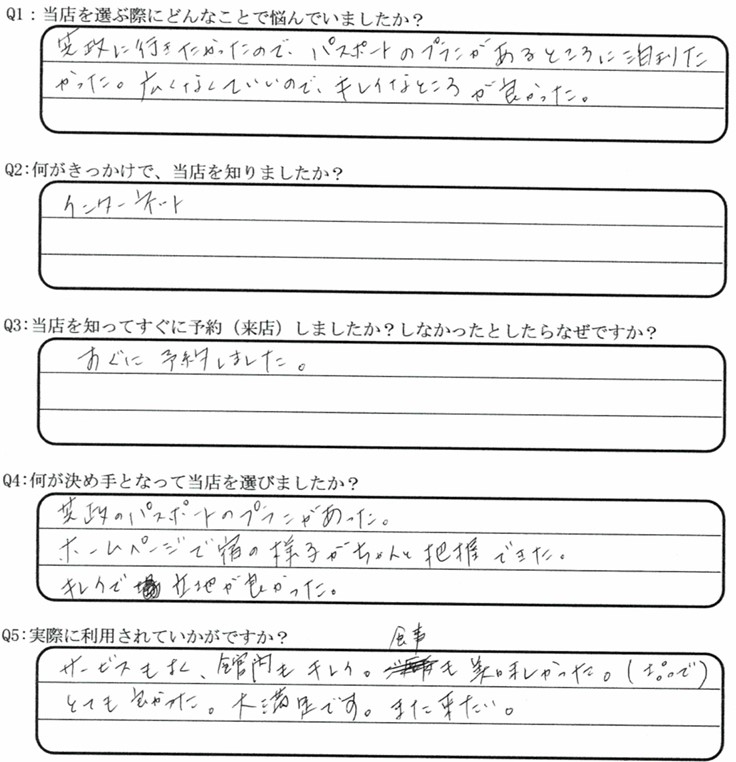 Q1：当店を選ぶ際にどんなことで悩んでいましたか？
に行きたかったので、パスポートのプランがあるところに泊りた
かった。広くなくていいので、キレイなところが良かった。
Q2：何がきっかけで、当店を知りましたか？
インターネット
Q3：当店を知ってすぐに予約（来店）しましたか？しなかったとしたらなぜですか？
すぐに予約しました。
Q4：何が決め手となって当店を選びましたか？
のパスポートのプランがあった。
ホームページで宿の様子がちゃんと把握できた。
キレイで立地が良かった。
Q5：実際に利用されていかがですか？
食事
サービスも良く、館内もキレイ。も美味しかった。（
とても良かった。大満足です。また来たい。